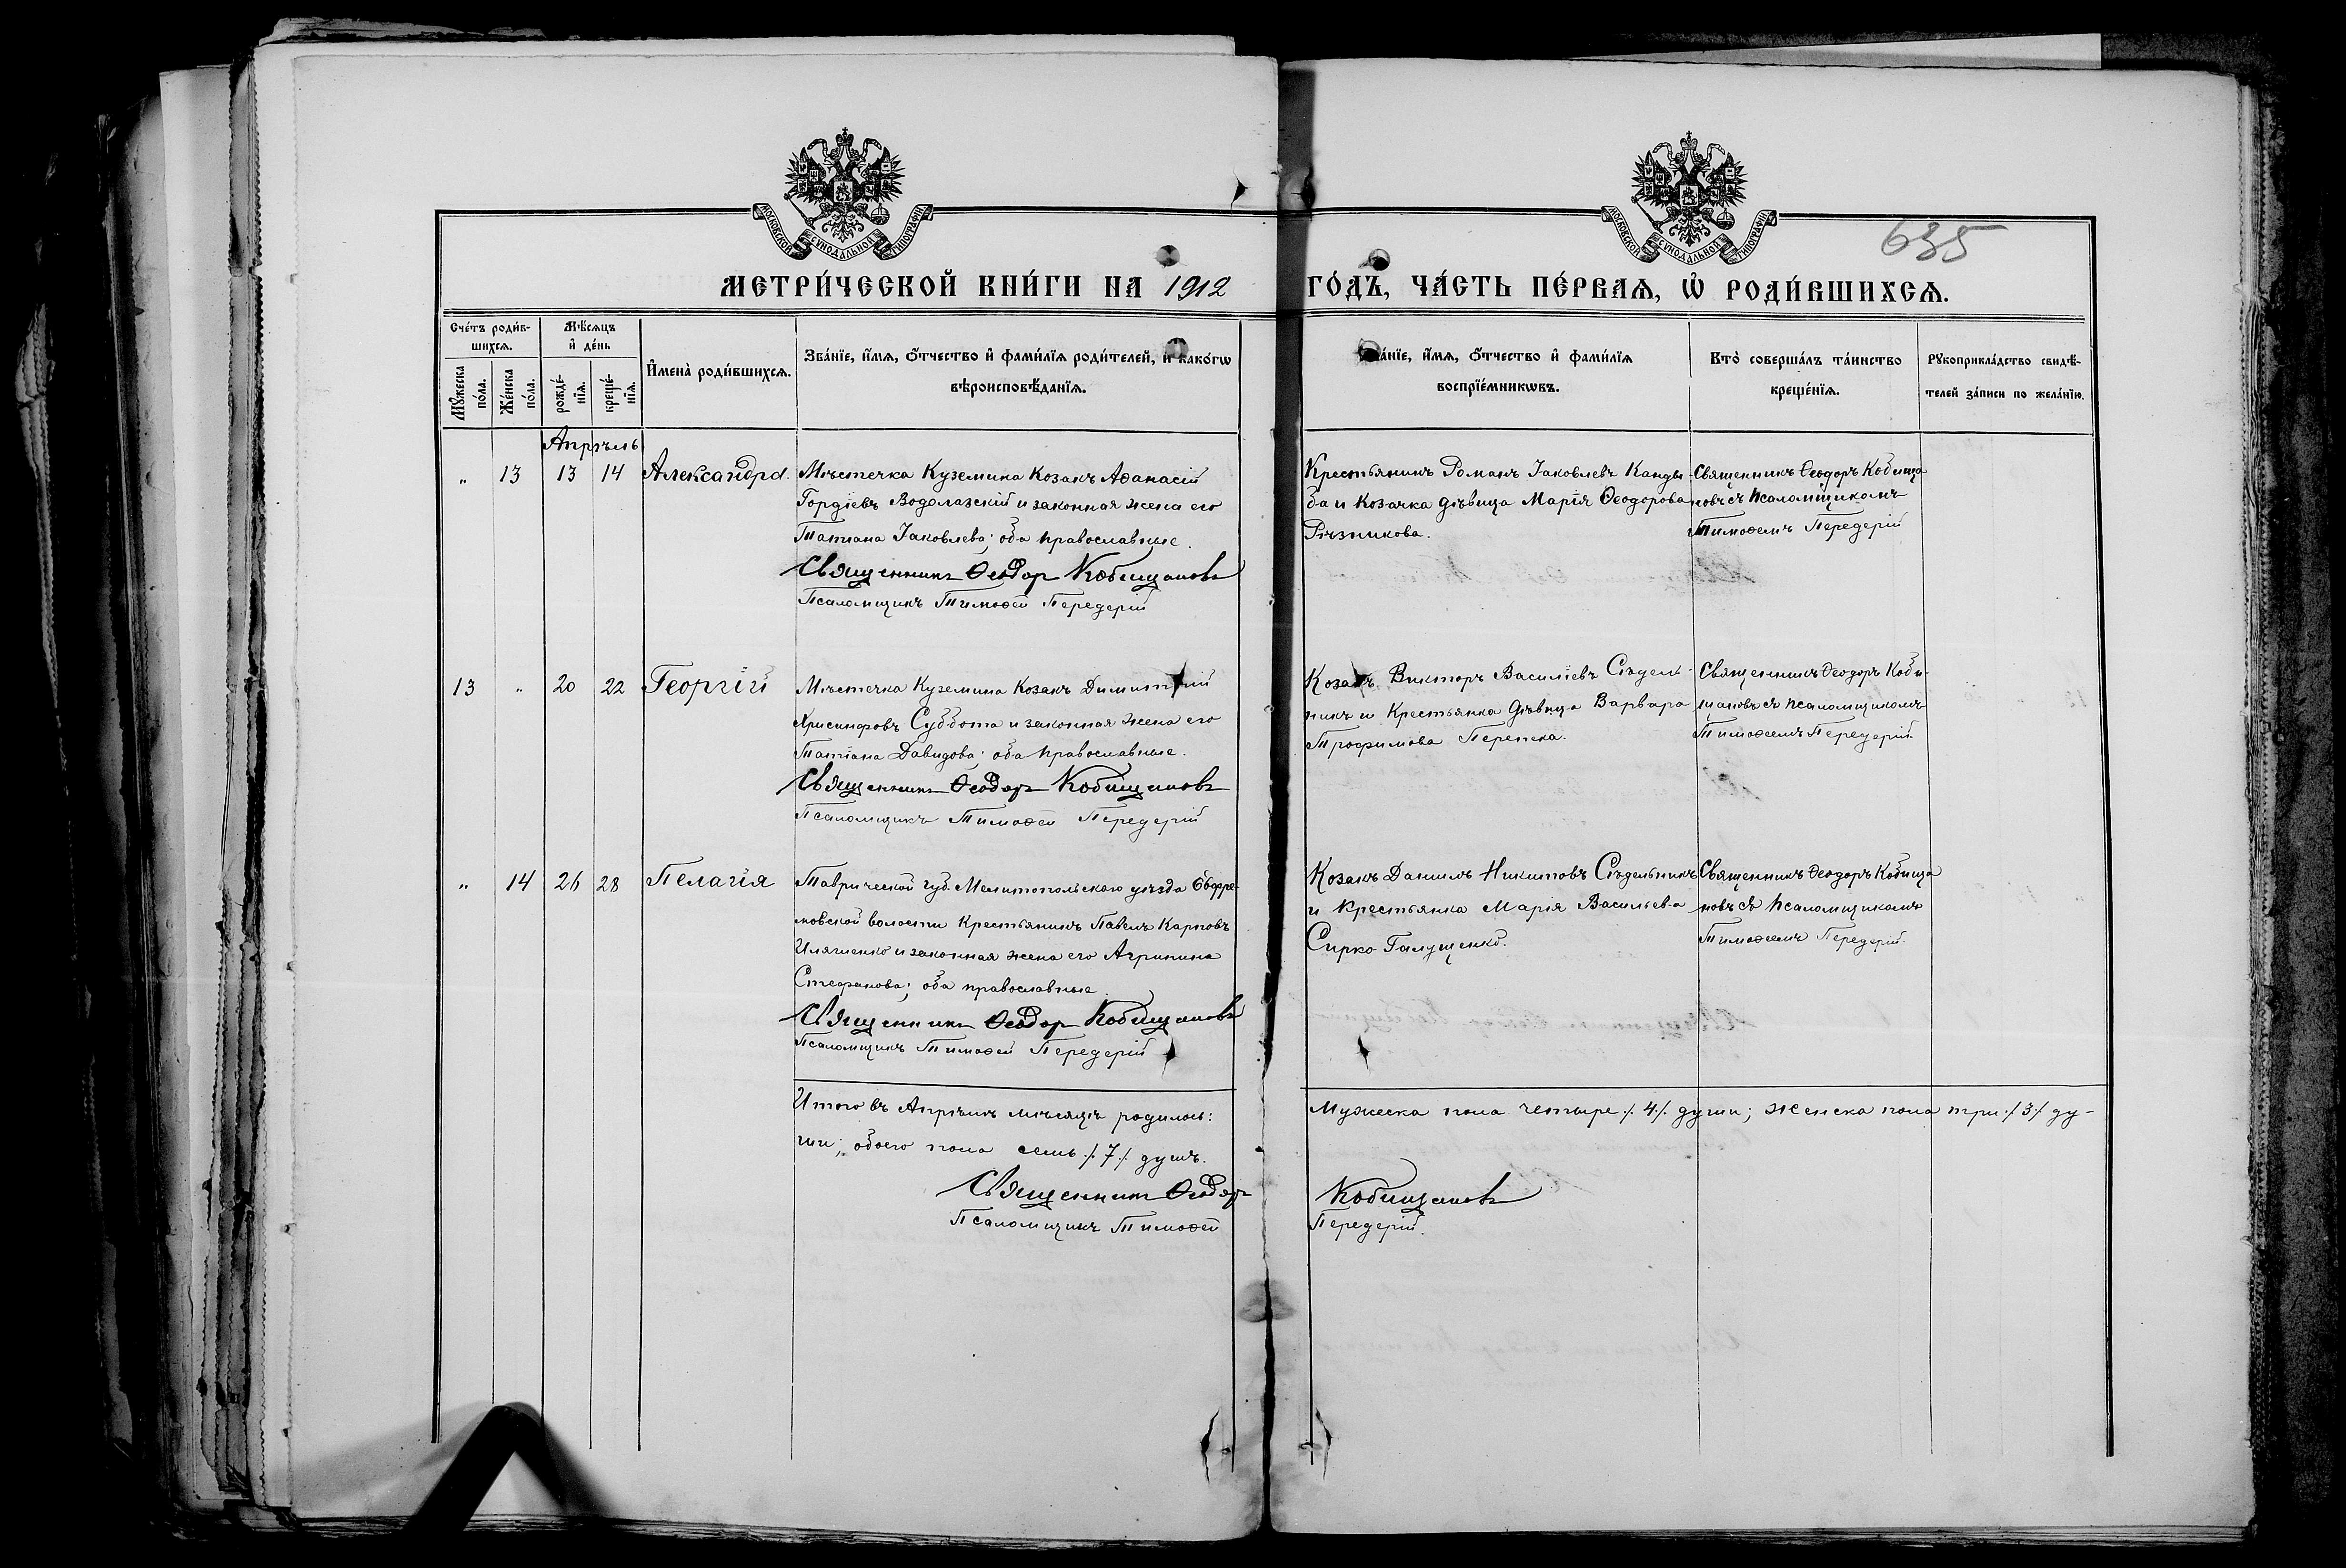 МОСКОВСКОЙ СУНОДАЛЬНОЙ ТИПОГРАФІИ
МОСКОВСКОЙ СУНОДАЛЬНОЙ ТИПОГРАФІИ
635
МЕТРИ́ЧЕСКОЙ КНИ́ГИ НА 1912 ГО́ДЪ, ЧА́СТЬ ПЕ́РВАѦ, Ѡ҆ РОДИ́ВШИХСѦ.
Сче́тъ роди́в-
шихсѧ.
Мѣ́сѧцъ
и҆ де́нь
Мꙋ́жеска
по́ла.
Же́нска
по́ла.
рожде́-
нїѧ.
креще́-
нїѧ.
И҆мена̀ роди́вшихсѧ.
Зва́нїе, и҆́мѧ, ѻ҆́тчество и҆ фами́лїѧ роди́телей, и҆ како́гѡ
вѣроисповѣ́данїѧ.
Зва́нїе, и҆́мѧ, ѻ҆́тчество и҆ фами́лїѧ
воспрїе́мникѡвъ.
Кто̀ соверша́лъ та́инство
креще́нїѧ.
Рꙋкоприкла́дство свидѣ́-
телей за́писи по жела́нїю.
Апрѣль
„ 13 13 14 Александра.
Мѣстечка Куземина Козакъ Аѳанасій
Гордіевъ Водолазскій и законная жена его
Татіана Іаковлева; оба православные.
Священникъ Ѳеодоръ Кобищановъ
Псаломщикъ Тимоѳей Передерій
Крестьянинъ Романъ Іаковлевъ Канды-
ба и Козачка дѣвица Марія Ѳеодорова
Рѣзникова.
Священникъ Ѳеодоръ Кобища
новъ съ Псаломщикомъ
Тимоѳеемъ Передерій
13 „ 20 22 Георгій
Мѣстечка Куземина Козакъ Димитрій
Хрисанфовъ Суббота и законная жена его
Татіана Давидова; оба православные.
Священникъ Ѳеодоръ Кобищановъ
Псаломщикъ Тимоѳей Передерій
Козакъ Викторъ Василіевъ Сѣдель-
никъ и Крестьянка дѣвица Варвара
Трофимова Перепека.
Священникъ Ѳеодоръ Коби-
щановъ съ псаломщикомъ
Тимоѳеемъ Передерій.
„ 14 26 28 Пелагія
Таврической губ. Мелитопольскаго уѣзда Ефре-
мовской волости Крестьянинъ Павелъ Карповъ
Иляшенко и законная жена его Агрипина
Стефанова; оба православные.
Священникъ Ѳеодоръ Кобищановъ
Псаломщикъ Тимоѳей Передерій
Козакъ Даніилъ Никитовъ Сѣдельникъ
и Крестьянка Марія Васильева
Сирко-Галущенко.
Священникъ Ѳеодоръ Кобища
новъ съ Псаломщикомъ
Тимоѳеемъ Передерій.
Итого въ Апрѣлѣ мѣсяцѣ родилось: Мужеска пола четыре ⁒ 4 ⁒ души; женска пола три ⁒ 3 ⁒ ду-
ши; обоего пола семь ⁒ 7 ⁒ душъ.
Священникъ Ѳеодоръ Кобищановъ
Псаломщикъ Тимоѳей Передерій.